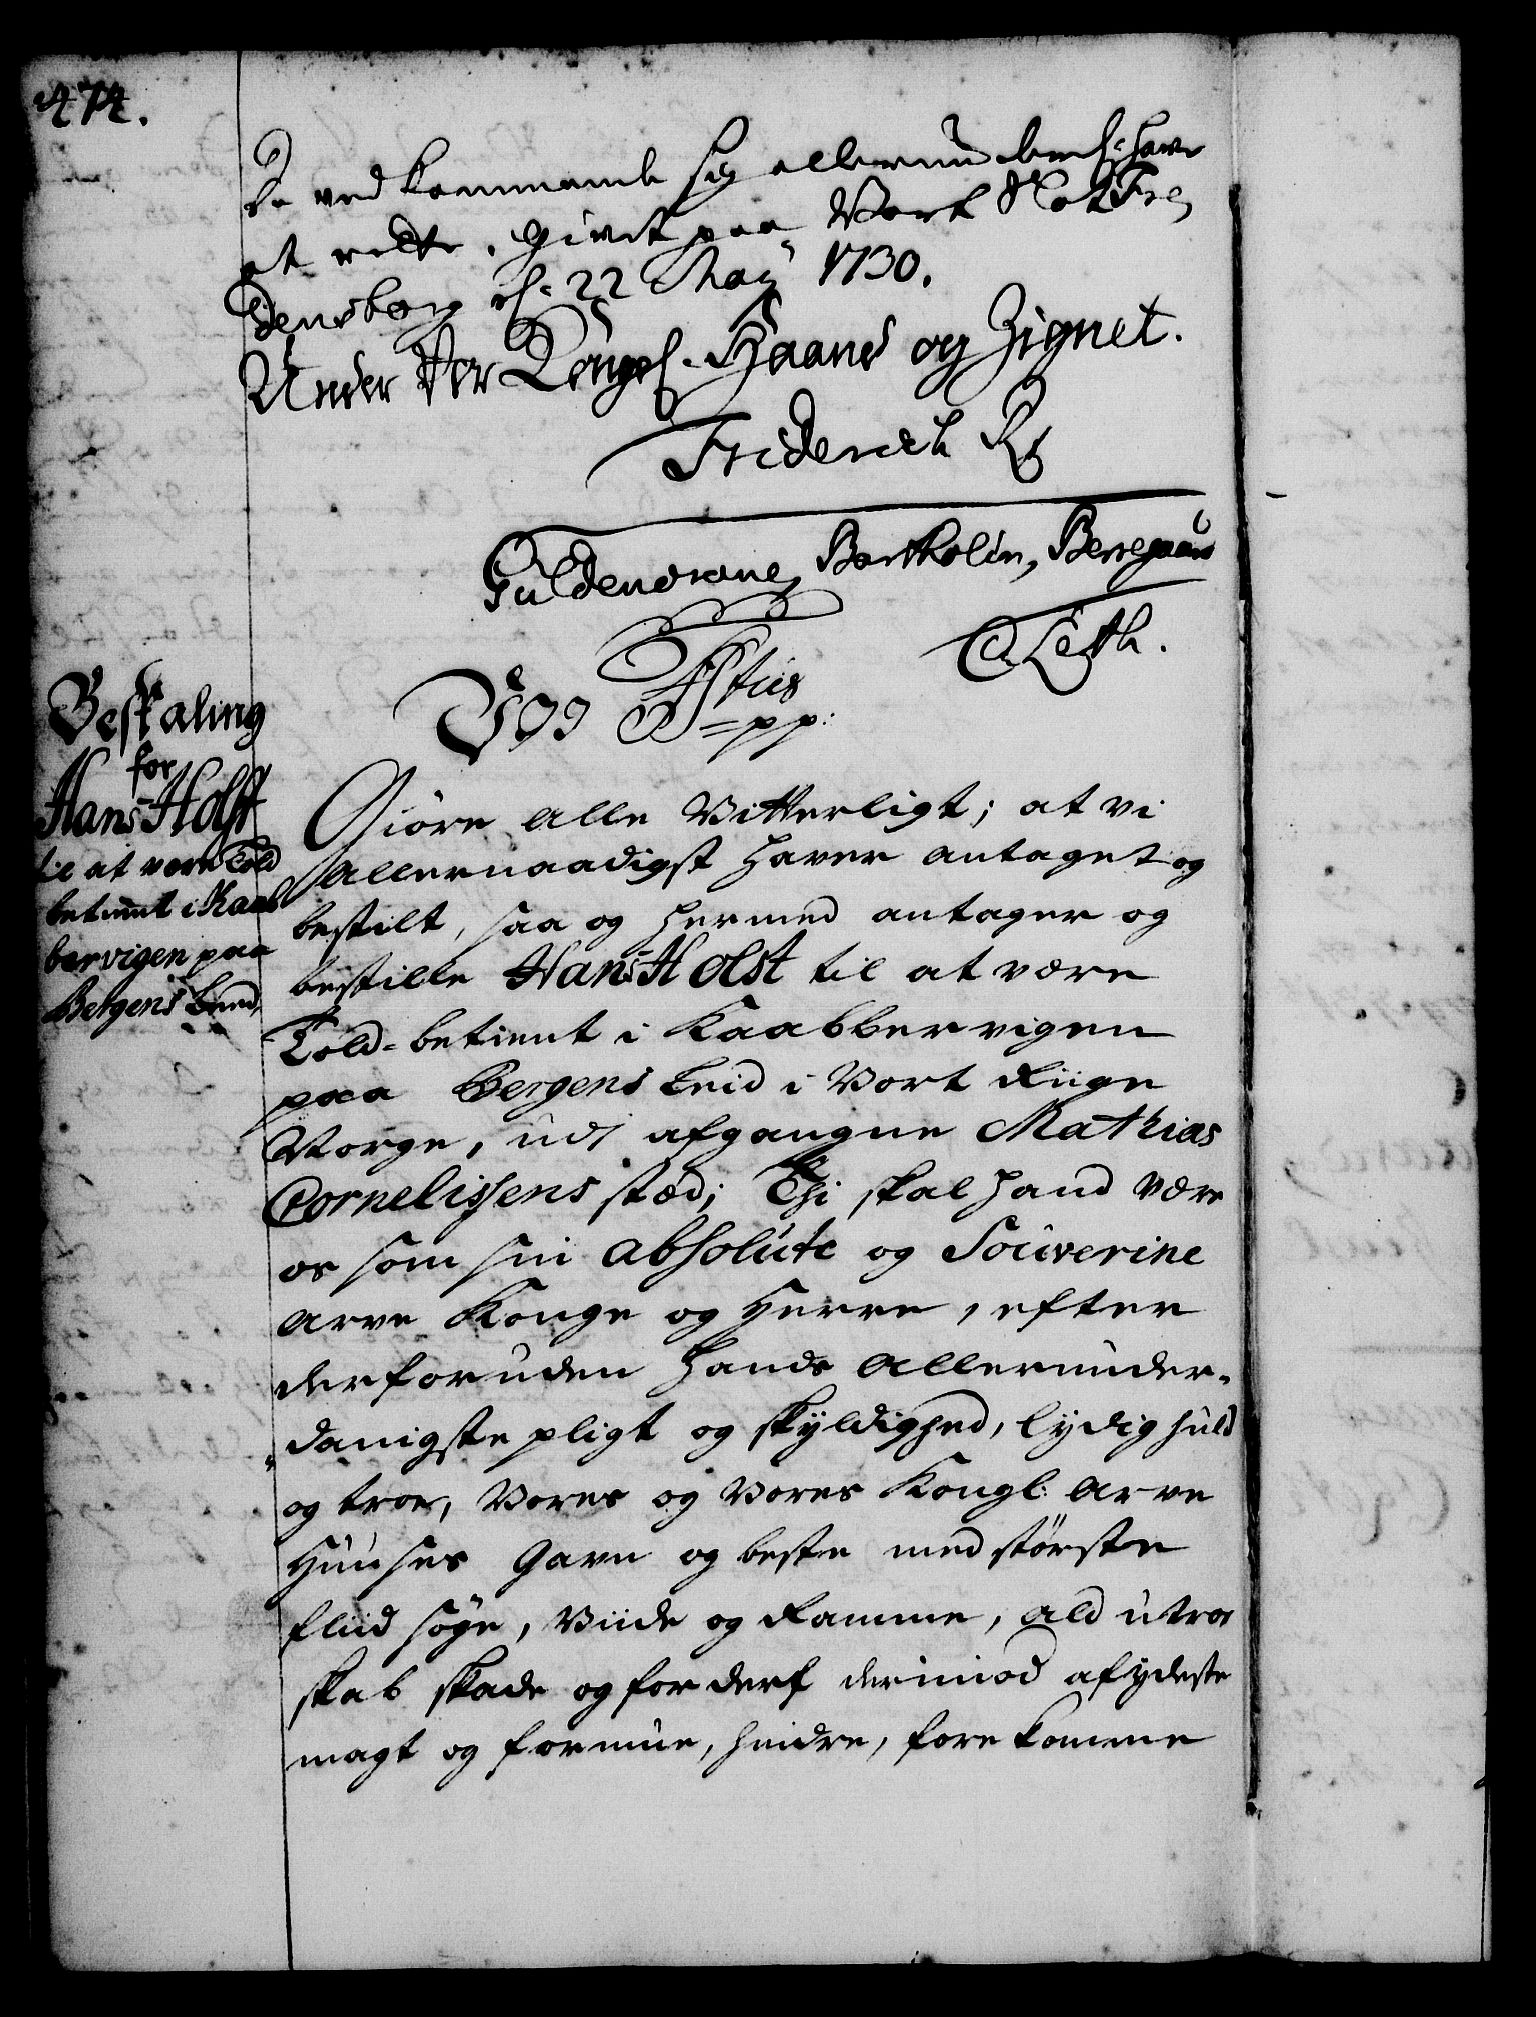 474.
de vedkommende sig allerunderd: have
at rette. Givet paa Vort Slot Fre¬
densborg d. 22 May 1730.
Under Vor Kongel. Haand og Zignet.
Friderich R
Güldencrone, Bartholin, Berregaard
C. Leth.
Beskaling
for
Hans Holst
til at være Told
betient i Kaab
bervigen paa
Bergens Leed,
pp:
Giøre alle Vitterligt; at vi
allernaadigst haver antaget og
bestilt, saa og hermed antager og
bestille Hans Holst til at være
Told-betient i Kaabbervigen
paa Bergens Leid i Vort Riige
Norge, udj afgangne Mathias
Cornelissens sted; Thi skal hand være
os som sin absolute og Souverine
arve Konge og Herre, efter
derforuden hands allerunder-
danigste pligt og skyldighed, lydig huld
og troe, Vores og Vores Kongl: arve
Huuses Gavn og beste med største
fliid søge, Viide og Ramme, ald utroe
skab skade og forderf derimod af yderste
magt og formue, hindre, forekomme